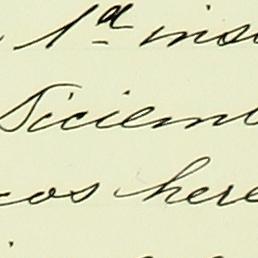 1ª ins
Diciemb
cos here